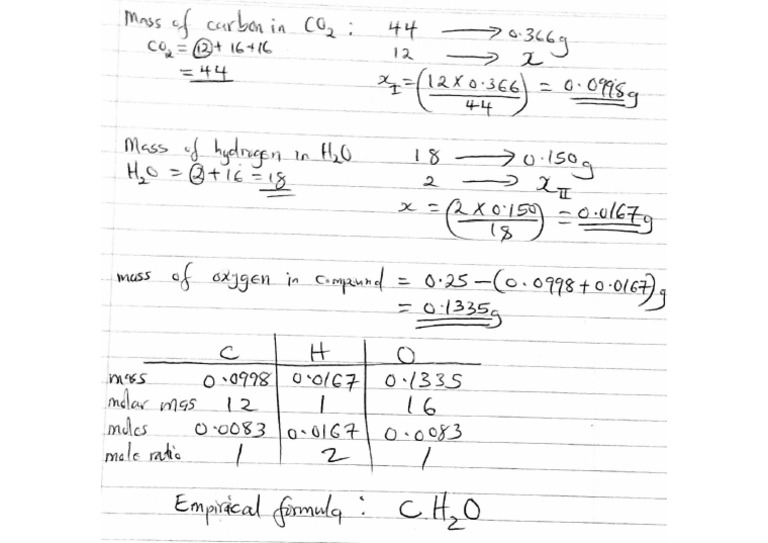 Mass of carbon in CO₂ : 44 → 0.366g
CO₂ = 12 + 16 + 16 12 → x
= 44 x_I = (12 × 0.366 / 44) = 0.0998g
Mass of hydrogen in H₂O 18 → 0.150g
H₂O = 2 + 16 = 18 2 → x_II
x = (2 × 0.150 / 18) = 0.0167g
mass of oxygen in compound = 0.25 - (0.0998 + 0.0167)g
= 0.1335g
C H O
mass 0.0998 0.0167 0.1335
molar mas 12 1 16
moles 0.0083 0.0167 0.0083
mole ratio 1 2 1
Empirical formula : CH₂O